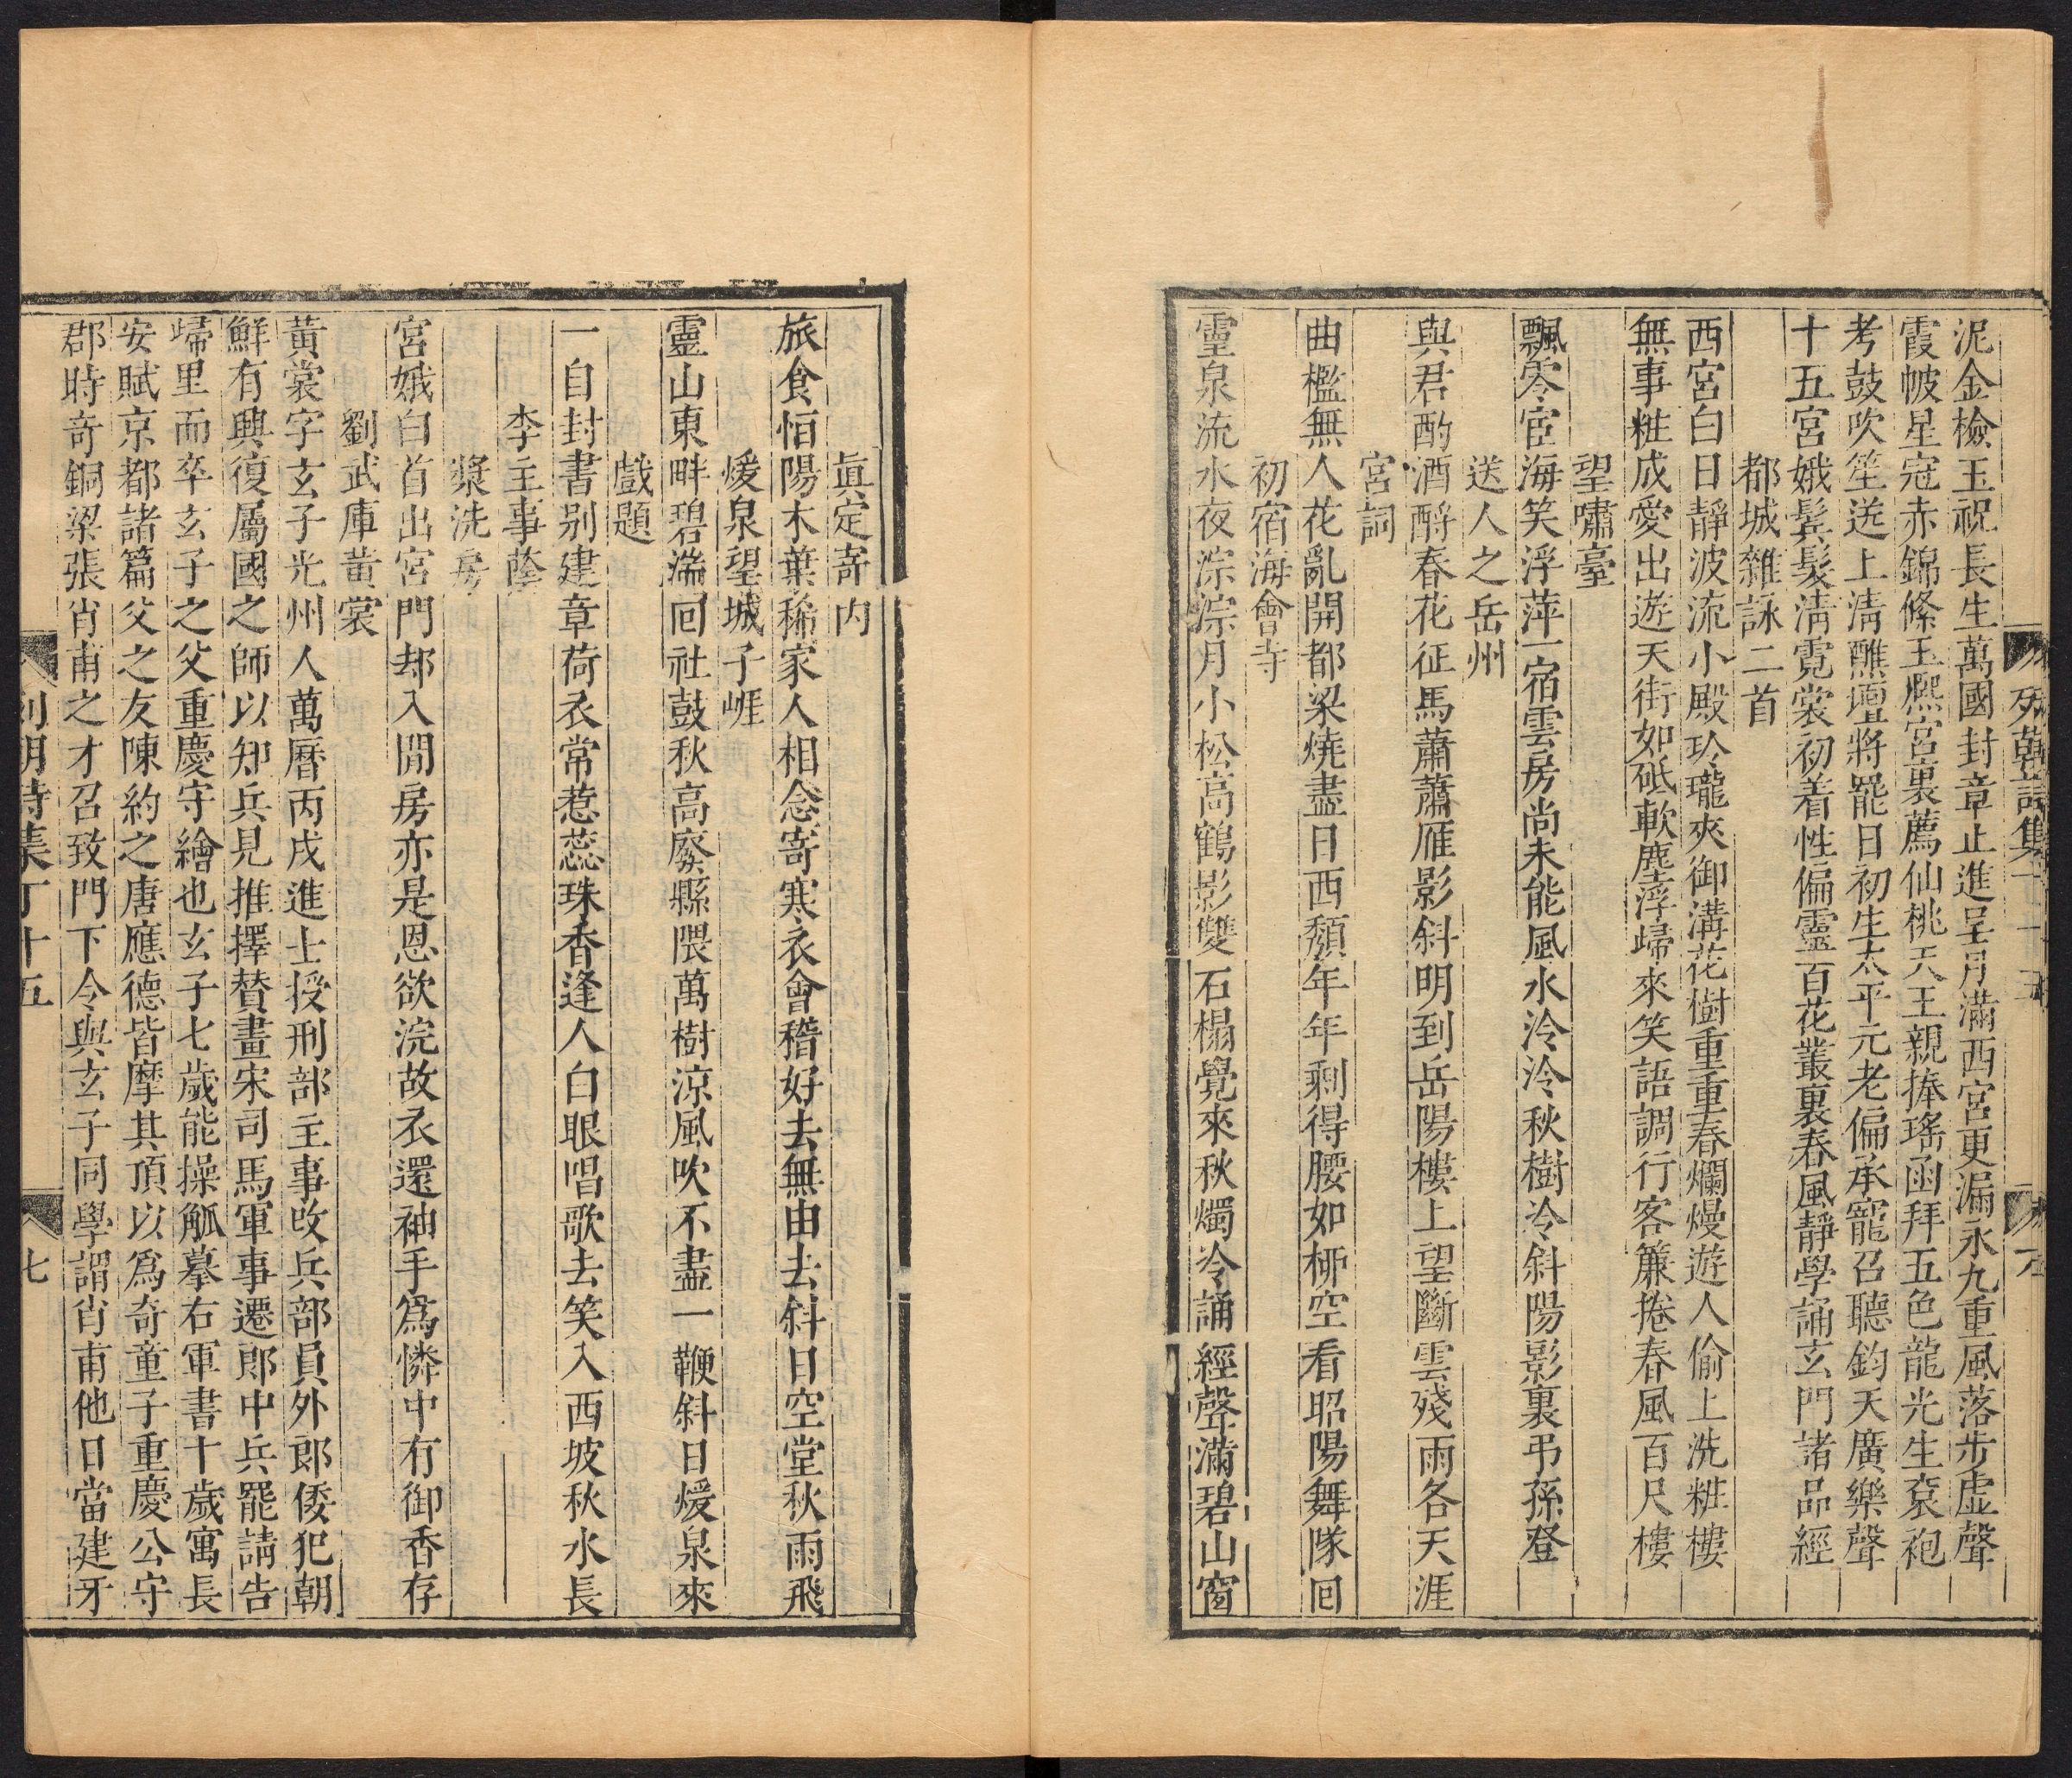 列朝詩集丁十五
泥金檢玉祝長生萬國封章止進呈月滿西宮更漏永九重風落步虛聲
霞帔星冠赤錦絛玉熈宮裏薦仙桃天王親捧瑤函拜五色龍光生袞袍
考鼓吹笙送上淸醮壇將罷日初生太平元老偏承寵召聽鈞天廣樂聲
十五宮娥鬂髮淸霓裳初着性偏靈百花叢裏春風靜學誦玄門諸品經
都城雜詠二首
西宮白日靜波流小殿玲瓏夾御溝花樹重重春爛熳遊人偷上洗粧樓
無事粧成愛出遊天街如砥軟塵浮歸來笑語調行客簾捲春風百尺樓
望嘯臺
飄零宦海笑浮萍一宿雲房尚未能風水泠泠秋樹冷斜陽影裏弔孫登
送人之岳州
與君酌酒酹春花征馬蕭蕭雁影斜明到岳陽樓上望斷雲殘雨各天涯
宮詞
曲檻無人花亂開都梁燒盡日西頹年年剩得腰如栁空看昭陽舞隊回
初宿海會寺
靈泉流水夜淙淙月小松高鶴影雙石榻覺來秋燭冷誦經聲滿碧山窗
眞定寄內
旅食恒陽木葉稀家人相念寄寒衣會稽好去無由去斜日空堂秋雨飛
煖泉望城子崕
靈山東畔碧湍回社鼓秋高廢縣隈萬樹涼風吹不盡一鞭斜日煖泉來
戲題
一自封書別建章荷衣常惹蕊珠香逢人白眼唱歌去笑入西坡秋水長
李主事蔭
漿洗房
宮娥白首出宮門却入閒房亦是恩欲浣故衣還袖手爲憐中有御香存
劉武庫黃裳
黃裳字玄子光州人萬曆丙戌進士授刑部主事改兵部員外郎倭犯朝
鮮有興復屬國之師以知兵見推擇贊畫宋司馬軍事遷郎中兵罷請告
歸里而卒玄子之父重慶守繪也玄子七歲能操觚摹右軍書十歲寓長
安賦京都諸篇父之友陳約之唐應德皆摩其頂以爲奇童子重慶公守
郡時奇銅梁張肖甫之才召致門下令與玄子同學謂肖甫他日當建牙
列朝詩集丁十五
七